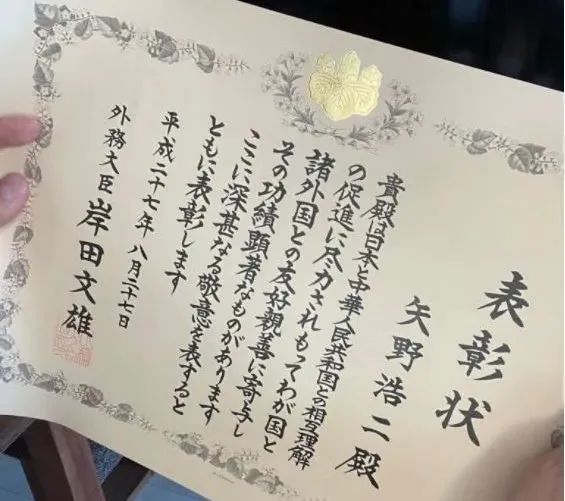 表彰状
矢野浩二殿
貴殿は日本と中華人民共和国との相互理解
の促進に尽力されもってわが国と
諸外国との友好親善に寄与し
その功績顕著なものがあります
ここに深甚なる敬意を表すると
ともに表彰します
平成二十七年八月二十七日
外務大臣 岸田文雄